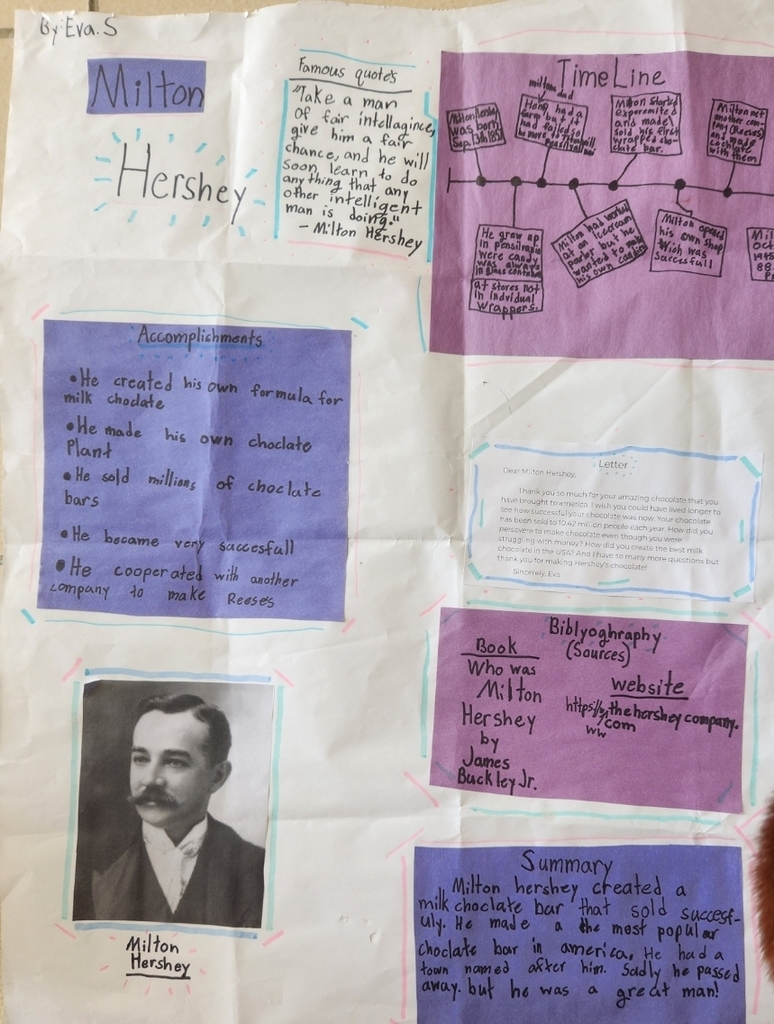 By: Eva. S
Milton
Hershey
Famous quotes
"Take a man
of fair intellagince,
give him a fair
chance, and he will
soon learn to do
any thing that any
other intelligent
man is doing."
- Milton Hershey
TimeLine
Milton Hershey
was born
Sep. 13th 1857
He grew up
in pensilvapia
were candy
was always
in glass
at stores not
in individual
wrappers.
miltons dad
Henry had a
farm but
had failed so
he
Milton had worked
at an icecream
parlor but he
wanted to make
his own
Milton started
experemited
and made
sold his first
wrapped cho-
clate bar.
Milton opened
his own shop
Wich was
Sucsesfull
Milton met
another com-
pany (Reeses)
and made
choclate
with them
Mil
Oct
1945
88.
P
Accomplichments
•He created his own formula for
milk choclate
•He made his own choclate
Plant
•He sold millions of choclate
bars
•He became very succesfull
•He cooperated with another
company to make Reese's
Letter
Dear Milton Hershey,
Thank you so much for your amazing chocolate that you
have brought to america. I wish you could have lived longer to
see how successful your chocolate was now. Your chocolate
has been sold to 10.42 million people each year. How did you
persevere to make chocolate even though you were
struggling with money? How did you create the best milk
chocolate in the USA? And I have so many more questions but
thank you for making Hershey's chocolate!
Sincerely, Eva
Biblyoghraphy
(Sources)
Book
Who was
Milton
Hershey
by
James
Buckley Jr.
website
https//:thehershey company.
/com
ww
Milton
Hershey
Summary
Milton hershey created a
milk choclate bar that sold succesf-
uly. He made a the most popular
choclate bar in america. He had a
town named after him. Sadly he passed
away. but he was a great man!